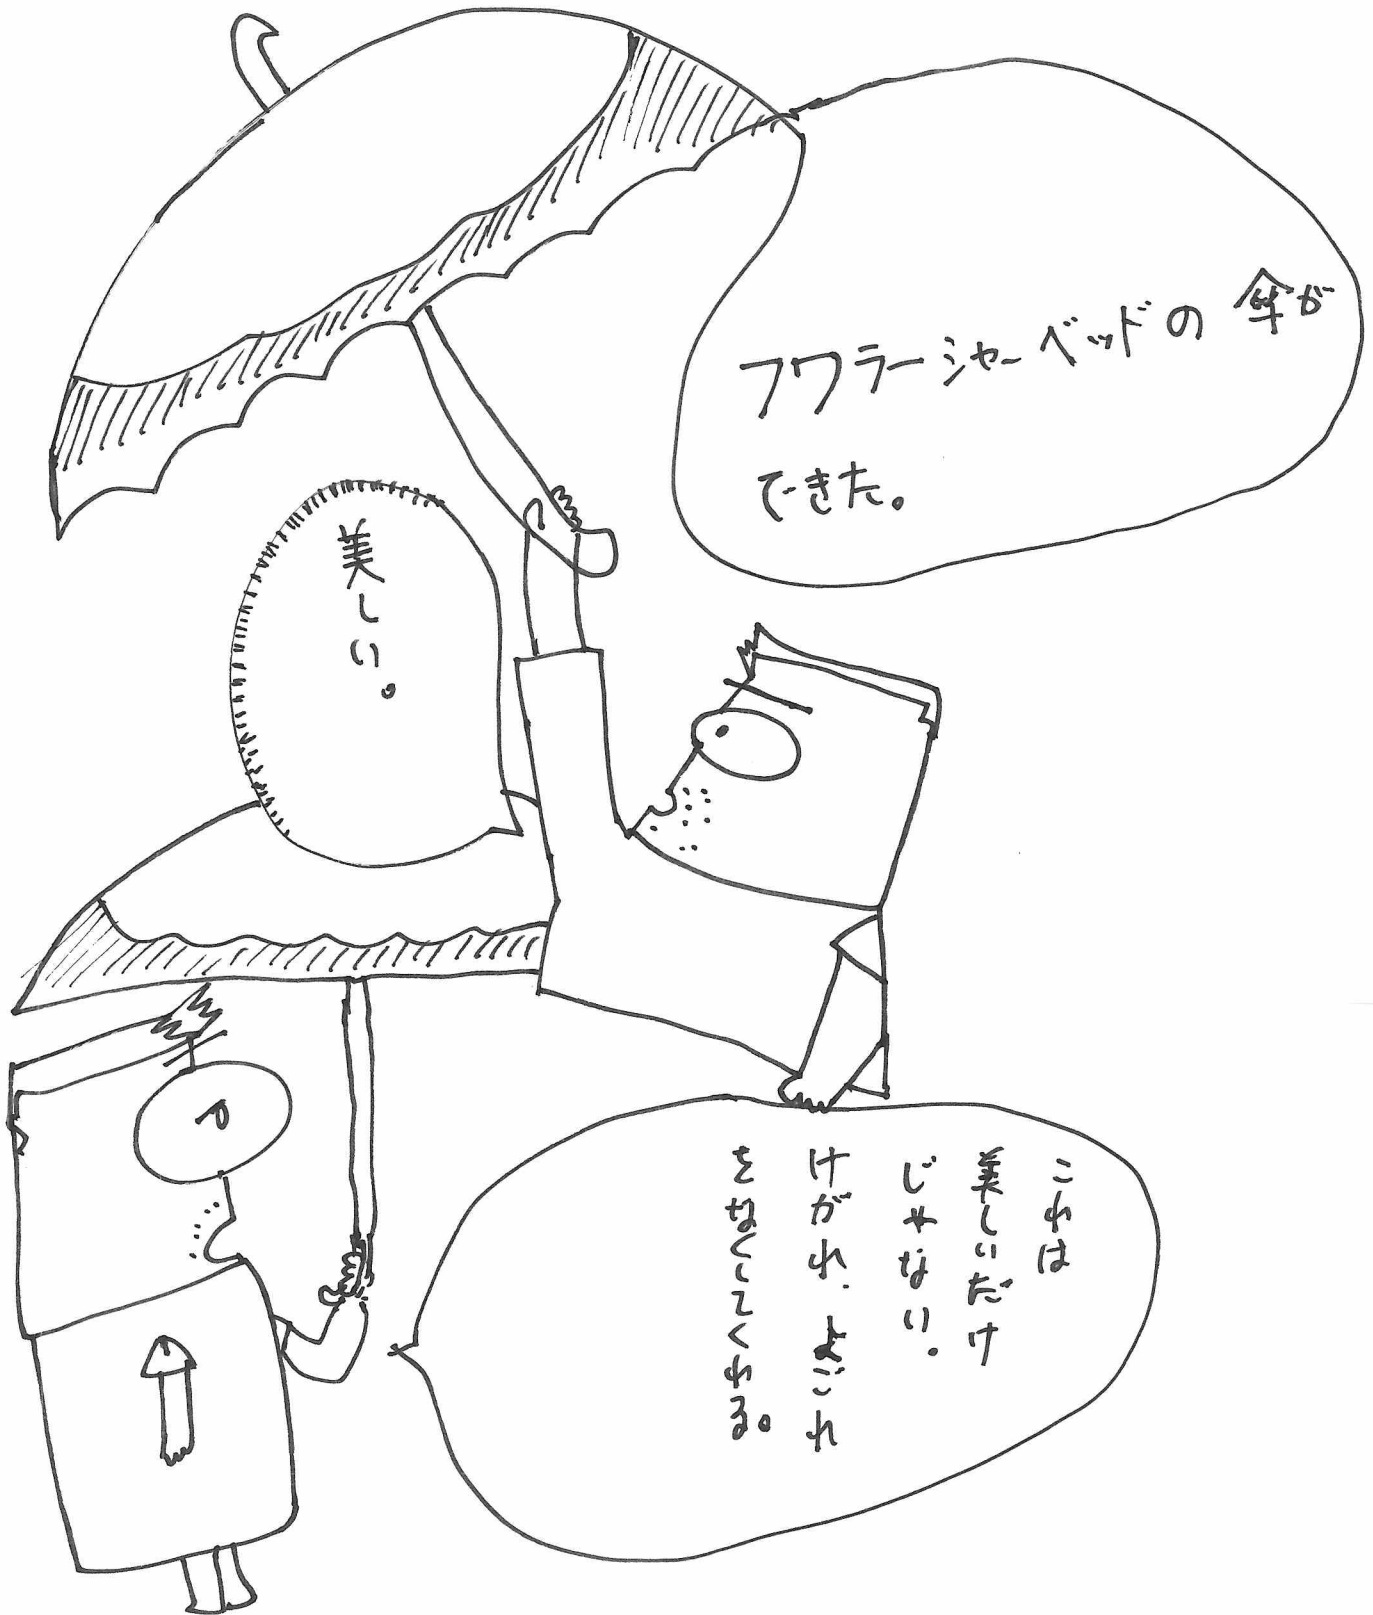 フワラーシャーベッドの傘が
できた。
美しい。
これは
美しいだけ
じゃない。
けがれ、よごれ
をなくしてくれる。